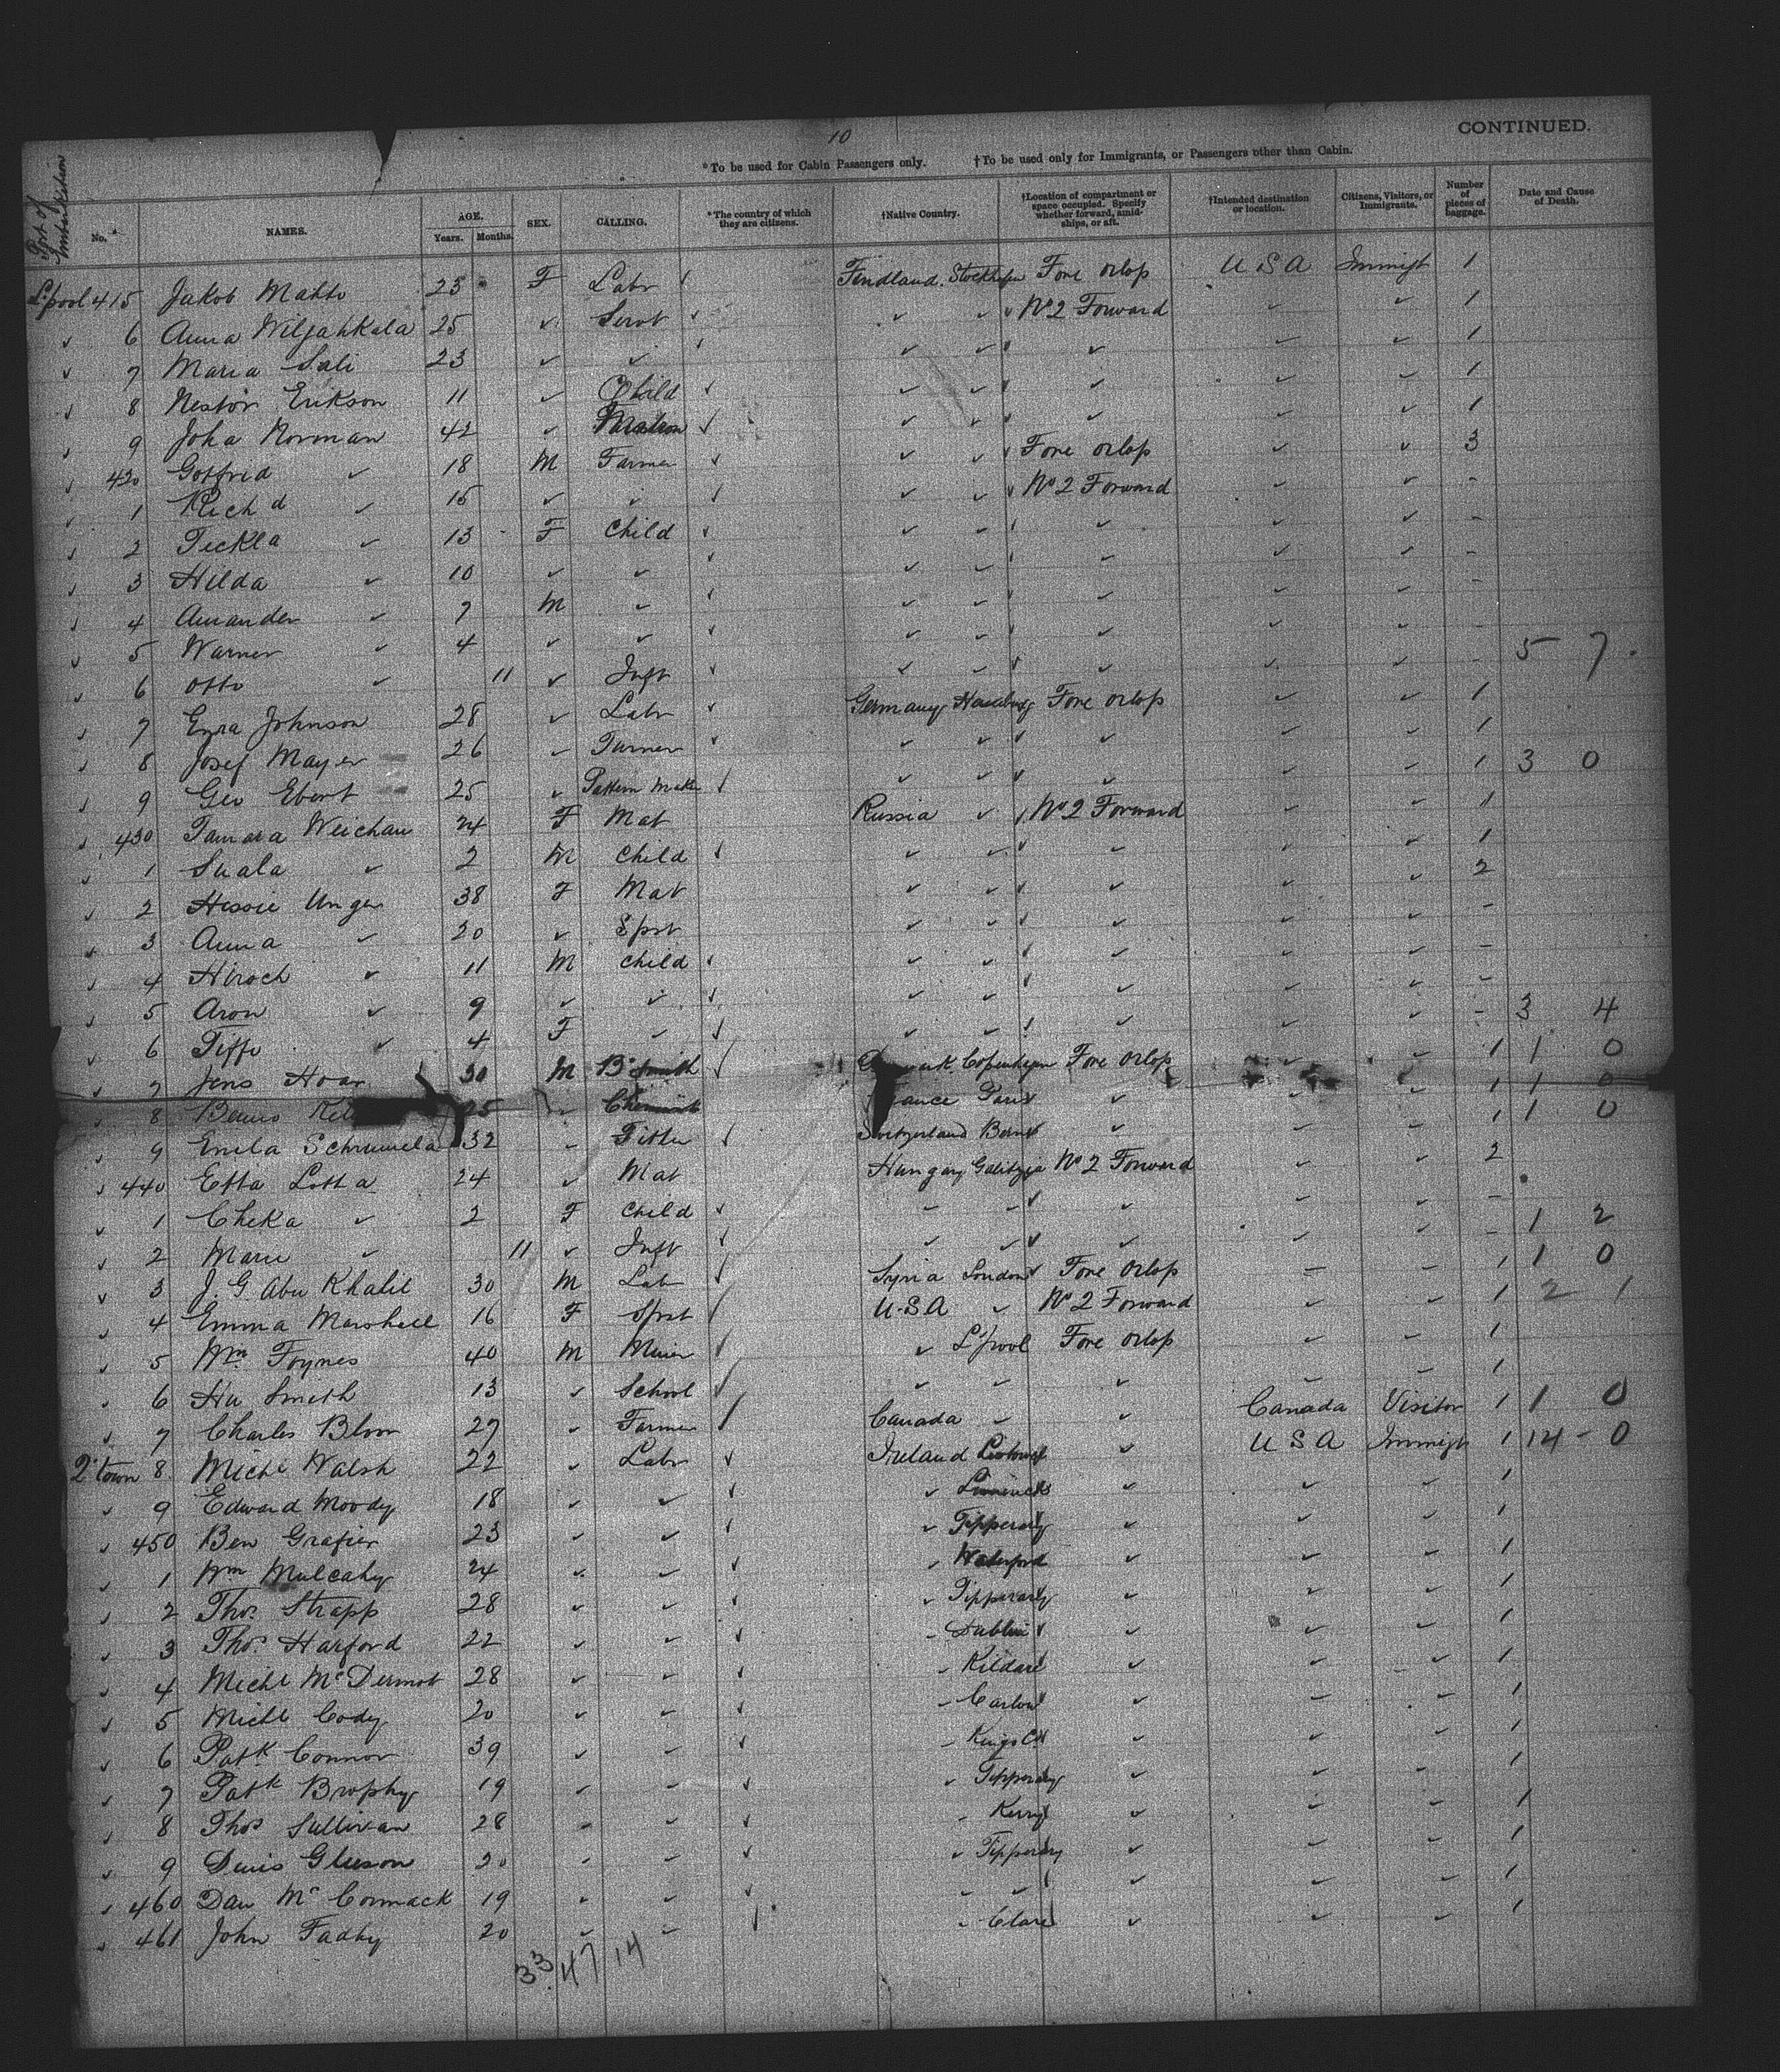 10
CONTINUED.
*To be used for Cabin Passengers only. †To be used only for Immigrants, or Passengers other than Cabin.
Port of Embarkation No. NAMES. AGE. Years. Months. SEX. CALLING. *The country of which they are citizens. †Native Country. †Location of compartment or space occupied. Specify whether forward, amidships, or aft. †Intended destination or location. Citizens, Visitors, or Immigrants. Number of pieces of baggage. Date and Cause of Death.
L'pool 415 Jakob Mahto 23 F Labr Findland. Fore orlop U S A Immigt 1
✓ 6 Anna Wiljahkala 25 ✓ Servt ✓ ✓ ✓ No 2 Forward ✓ ✓ 1
✓ 7 Maria Sali 23 ✓ ✓ ✓ ✓ ✓ ✓ ✓ 1
✓ 8 Nestor Erikson 11 ✓ Child ✓ ✓ ✓ ✓ ✓ ✓ 1
✓ 9 Joha Norman 42 ✓ Matron ✓ ✓ ✓ ✓ ✓ ✓ 1
✓ 420 Gotfrid ✓ 18 M Farmer ✓ ✓ ✓ Fore orlop ✓ ✓ 3
✓ 1 Richd ✓ 15 ✓ ✓ ✓ ✓ ✓ No 2 Forward ✓ ✓ -
✓ 2 Teckla ✓ 13 F Child ✓ ✓ ✓ ✓ ✓ ✓ -
✓ 3 Hilda ✓ 10 ✓ ✓ ✓ ✓ ✓ ✓ ✓ ✓ -
✓ 4 Amander ✓ 7 M ✓ ✓ ✓ ✓ ✓ ✓ ✓ -
✓ 5 Warner ✓ 4 ✓ ✓ ✓ ✓ ✓ ✓ ✓ ✓ -
✓ 6 Otto ✓ 11 ✓ Inft ✓ ✓ ✓ ✓ ✓ ✓ - 5 7
✓ 7 Ezra Johnson 28 ✓ Labr ✓ Germany Fore orlop ✓ ✓ 1
✓ 8 Josef Mayer 26 ✓ Farmer ✓ ✓ ✓ ✓ ✓ ✓ 1
✓ 9 Geo Ebert 25 ✓ Pattern Maker ✓ ✓ ✓ ✓ ✓ ✓ 1 3 0
✓ 430 Tamara Weichau 24 F Mat Russia ✓ No 2 Forward ✓ ✓ 1
✓ 1 Suala ✓ 2 M Child ✓ ✓ ✓ ✓ ✓ ✓ 1
✓ 2 Hessie Unger 38 F Mat ✓ ✓ ✓ ✓ ✓ 2
✓ 3 Anna ✓ 20 ✓ Spst ✓ ✓ ✓ ✓ ✓ -
✓ 4 Hiroch ✓ 11 M Child ✓ ✓ ✓ ✓ ✓ ✓ -
✓ 5 Aron ✓ 9 ✓ ✓ ✓ ✓ ✓ ✓ ✓ ✓ -
✓ 6 Tiffe ✓ 4 F ✓ ✓ ✓ ✓ ✓ ✓ ✓ - 3 4
✓ 7 Jens 30 M B'Smith ✓ Copenhagen Fore Orlop ✓ ✓ 1 1 0
8 25 ✓ Chemist Paris ✓ ✓ ✓ 1 1 0
✓ 9 32 ✓ Fitter ✓ Switzerland Bern ✓ ✓ ✓ 1 1 0
✓ 440 Etta Lotta 24 ✓ Mat Hungary No 2 Forward ✓ ✓ 2
✓ 1 Cheka ✓ 2 F Child ✓ ✓ ✓ ✓ ✓ ✓ -
✓ 2 Marie ✓ 11 ✓ Inft ✓ ✓ ✓ ✓ ✓ ✓ - 1 2
✓ 3 J. G Abu Khalil 30 M Lab ✓ Syria London Fore Orlop ✓ ✓ 1 1 0
✓ 4 Emma Marshell 16 F Spst ✓ U.S.A ✓ No 2 Forward ✓ ✓ 1 2 1
✓ 5 Wm Foynes 40 M Miner ✓ ✓ L'pool Fore Orlop ✓ ✓ 1
✓ 6 Hu Smith 13 ✓ School ✓ ✓ ✓ ✓ ✓ ✓ 1
✓ 7 Charles Bloor 27 ✓ Farmer ✓ Canada ✓ ✓ Canada Visitor 1 1 0
Q'town 8 Michl Walsh 22 ✓ Labr ✓ Ireland ✓ U S A Immigt 1 14 - 0
✓ 9 Edward Moody 18 ✓ ✓ ✓ ✓ Limerick ✓ ✓ ✓ 1
✓ 450 Ben 23 ✓ ✓ ✓ ✓ Tipperary ✓ ✓ ✓ 1
✓ 1 Wm Mulcahy 24 ✓ ✓ ✓ ✓ Waterford ✓ ✓ ✓ 1
✓ 2 Thos Strapp 28 ✓ ✓ ✓ ✓ Tipperary ✓ ✓ ✓ 1
✓ 3 Thos Harford 22 ✓ ✓ ✓ ✓ Dublin ✓ ✓ ✓ 1
✓ 4 Michl McDermot 28 ✓ ✓ ✓ ✓ Kildare ✓ ✓ ✓ 1
✓ 5 Michl Cody 20 ✓ ✓ ✓ ✓ Carlow ✓ ✓ ✓ 1
✓ 6 Patk Connor 39 ✓ ✓ ✓ ✓ Kings Co ✓ ✓ ✓ 1
✓ 7 Patk Brophy 19 ✓ ✓ ✓ ✓ Tipperary ✓ ✓ ✓ 1
✓ 8 Thos Sullivan 28 ✓ ✓ ✓ ✓ Kerry ✓ ✓ ✓ 1
✓ 9 Denis Gleeson 20 ✓ ✓ ✓ ✓ Tipperary ✓ ✓ ✓ 1
✓ 460 Dan McCormack 19 ✓ ✓ ✓ ✓ ✓ ✓ ✓ ✓ 1
✓ 461 John Fadhy 20 ✓ ✓ ✓ ✓ Clare ✓ ✓ ✓ 1
33 47 14